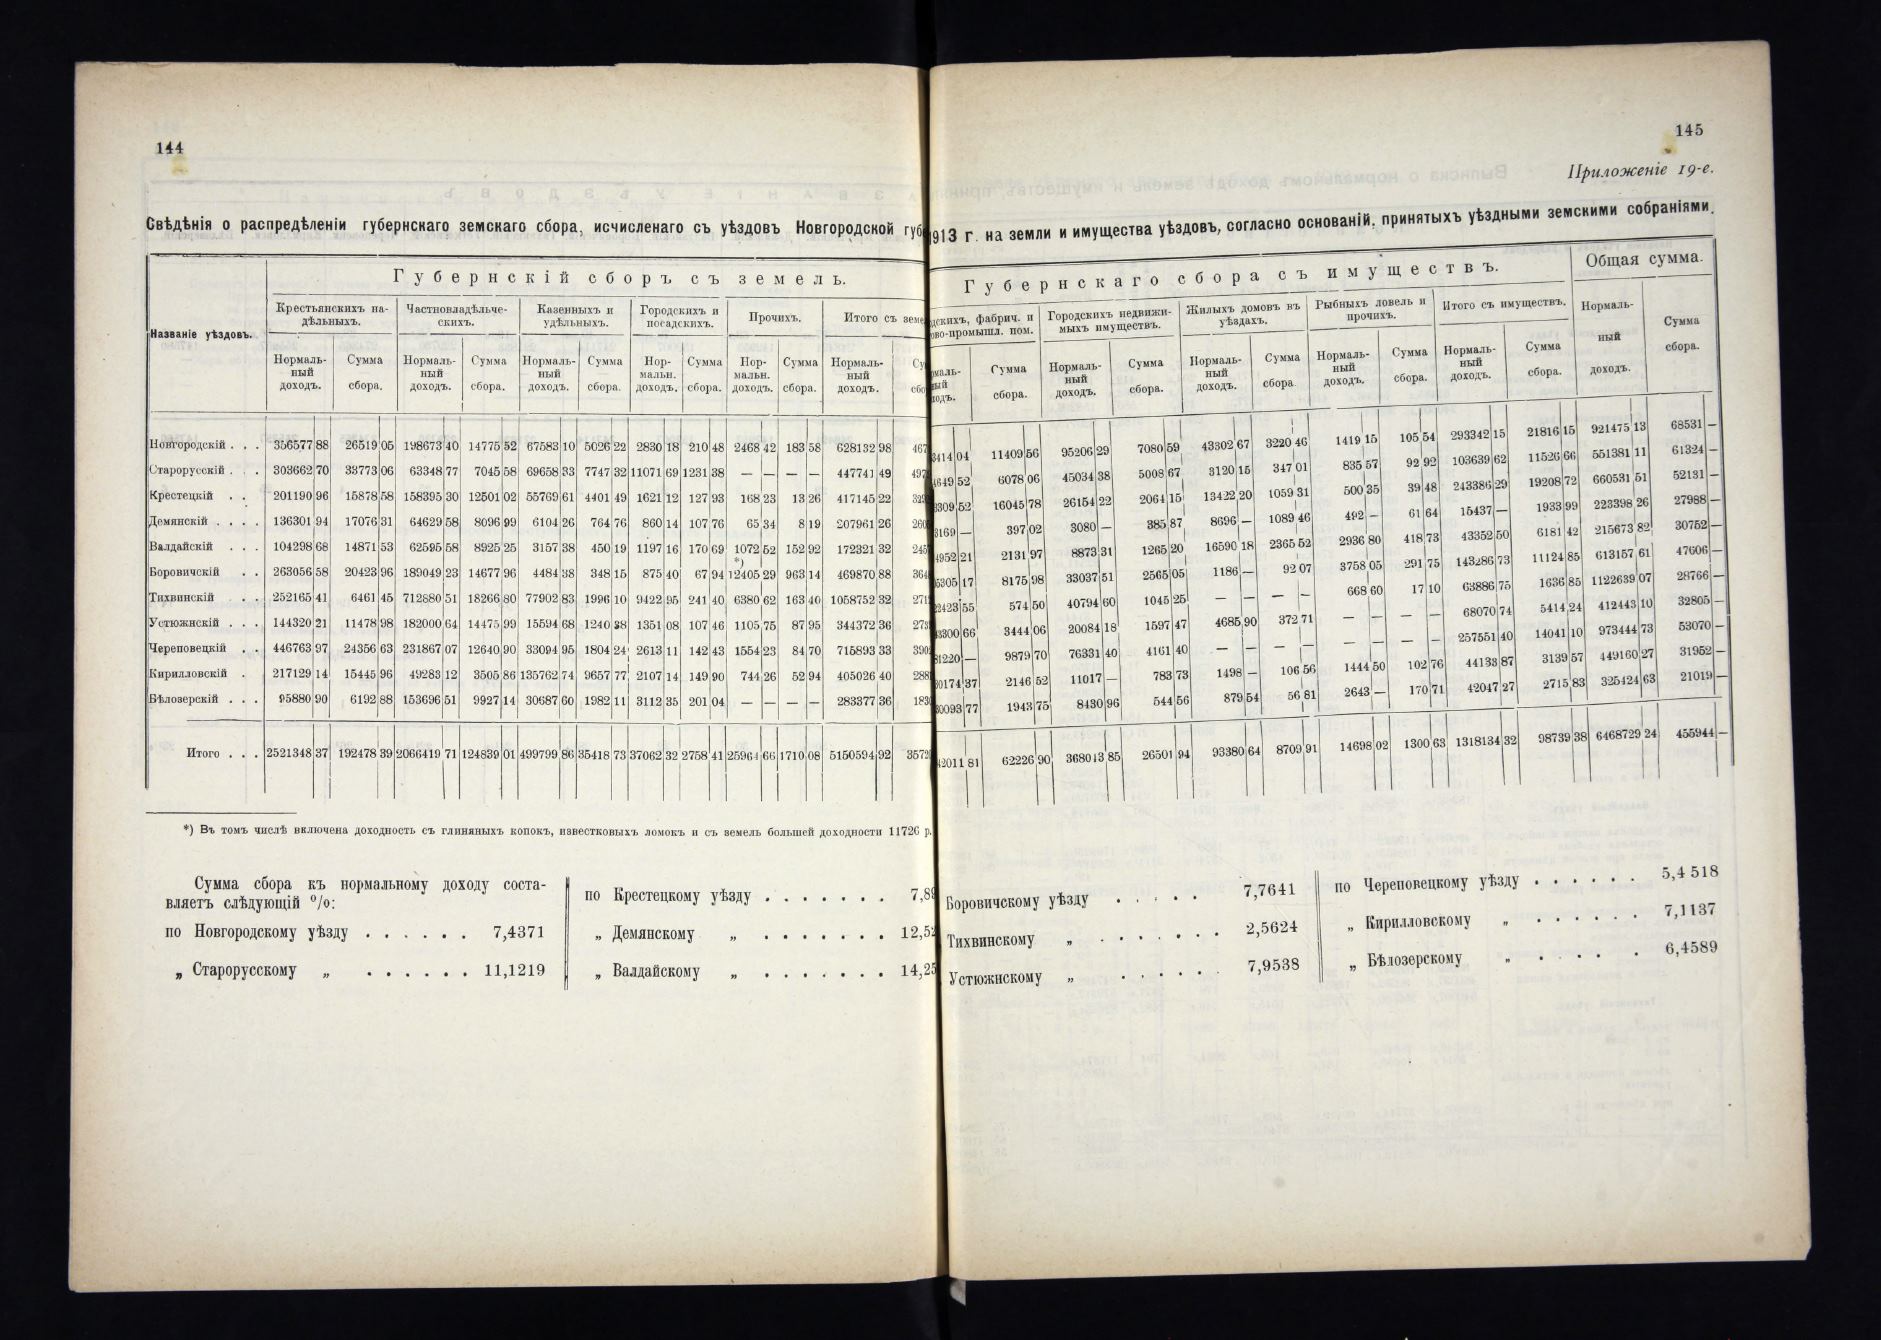 144
Свѣдѣнія о распредѣленіи губернскаго земскаго сбора, исчисленаго съ уѣздовъ Новгородской
Названіе уѣздовъ.
Губернскій сборъ съ земель.
Крестьянскихъ на-дѣльныхъ. Частновладѣльче-скихъ. Казенныхъ и удѣльныхъ. Городскихъ и посадскихъ. Прочихъ. Итого съ
Нормаль-ный доходъ. Сумма сбора. Нормаль-ный доходъ. Сумма сбора. Нормаль-ный доходъ. Сумма сбора. Нор-мальн. доходъ. Сумма сбора. Нор-мальн. доходъ. Сумма сбора. Нормаль-ный доходъ.
Новгородскій . . . 356577 88 26519 05 198673 40 14775 52 67583 10 5026 22 2830 18 210 48 2468 42 183 58 628132 98
Старорусскій . . . 303662 70 33773 06 63348 77 7045 58 69658 33 7747 32 11071 69 1231 38 — — — — 447741 49
Крестецкій . . 201190 96 15878 58 158395 30 12501 02 55769 61 4401 49 1621 12 127 93 168 23 13 26 417145 22
Демянскій . . . . 136301 94 17076 31 64629 58 8096 99 6104 26 764 76 860 14 107 76 65 34 8 19 207961 26
Валдайскій . . . 104298 68 14871 53 62595 58 8925 25 3157 38 450 19 1197 16 170 69 1072 52 152 92 172321 32
Боровичскій . . 263056 58 20423 96 189049 23 14677 96 4484 38 348 15 875 40 67 94 *) 12405 29 963 14 469870 88
Тихвинскій . . 252165 41 6461 45 712880 51 18266 80 77902 83 1996 10 9422 95 241 40 6380 62 163 40 1058752 32
Устюжнскій . . . 144320 21 11478 98 182000 64 14475 99 15594 68 1240 38 1351 08 107 46 1105 75 87 95 344372 36
Череповецкій . . 446763 97 24356 63 231867 07 12640 90 33094 95 1804 24 2613 11 142 43 1554 23 84 70 715893 33
Кирилловскій . 217129 14 15445 96 49283 12 3505 86 135762 74 9657 77 2107 14 149 90 744 26 52 94 405026 40
Бѣлозерскій . . . 95880 90 6192 88 153696 51 9927 14 30687 60 1982 11 3112 35 201 04 — — — — 283377 36
Итого . . . 2521348 37 192478 39 2066419 71 124839 01 499799 86 35418 73 37062 32 2758 41 25964 66 1710 08 5150594 92
*) Въ томъ числѣ включена доходность съ глиняныхъ копокъ, известковыхъ ломокъ и съ земель большей доходности 11726 р.
Сумма сбора къ нормальному доходу соста-
вляетъ слѣдующій %:
по Новгородскому уѣзду . . . . . . 7,4371
„ Старорусскому „ . . . . . . 11,1219
по Крестецкому уѣзду . . . . . . .
„ Демянскому „ . . . . . . .
„ Валдайскому „ . . . . . . .
145
Приложеніе 19-е.
1913 г. на земли и имущества уѣздовъ, согласно основаній, принятыхъ уѣздными земскими собраніями.
Губернскаго сбора съ имуществъ.
Общая сумма.
фабрич. и пом. Городскихъ недвижи-мыхъ имуществъ. Жилыхъ домовъ въ уѣздахъ. Рыбныхъ ловель и прочихъ. Итого съ имуществъ. Нормаль-ный доходъ. Сумма сбора.
Сумма сбора. Нормаль-ный доходъ. Сумма сбора. Нормаль-ный доходъ. Сумма сбора Нормаль-ный доходъ. Сумма сбора. Нормаль-ный доходъ. Сумма сбора.
04 11409 56 95206 29 7080 59 43302 67 3220 46 1419 15 105 54 293342 15 21816 15 921475 13 68531 —
52 6078 06 45034 38 5008 67 3120 15 347 01 835 57 92 92 103639 62 11526 66 551381 11 61324 —
52 16045 78 26154 22 2064 15 13422 20 1059 31 500 35 39 48 243386 29 19208 72 660531 51 52131 —
— 397 02 3080 — 385 87 8696 — 1089 46 492 — 61 64 15437 — 1933 99 223398 26 27988 —
21 2131 97 8873 31 1265 20 16590 18 2365 52 2936 80 418 73 43352 50 6181 42 215673 82 30752 —
17 8175 98 33037 51 2565 05 1186 — 92 07 3758 05 291 75 143286 73 11124 85 613157 61 47606 —
55 574 50 40794 60 1045 25 — — — — 668 60 17 10 63886 75 1636 85 1122639 07 28766 —
66 3444 06 20084 18 1597 47 4685 90 372 71 — — — — 68070 74 5414 24 412443 10 32805 —
— 9879 70 76331 40 4161 40 — — — — — — — — 257551 40 14041 10 973444 73 53070 —
37 2146 52 11017 — 783 73 1498 — 106 56 1444 50 102 76 44133 87 3139 57 449160 27 31952 —
77 1943 75 8430 96 544 56 879 54 56 81 2643 — 170 71 42047 27 2715 83 325424 63 21019 —
81 62226 90 368013 85 26501 94 93380 64 8709 91 14698 02 1300 63 1318134 32 98739 38 6468729 24 455944 —
Боровичскому уѣзду . . . . . 7,7641
Тихвинскому „ . . . . . . . 2,5624
Устюжнскому „ . . . . . . 7,9538
по Череповецкому уѣзду . . . . . . 5,4 518
„ Кирилловскому „ . . . . . . 7,1137
„ Бѣлозерскому „ . . . . . 6,4589